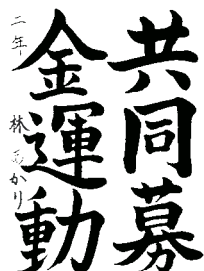 共同募
金運動
二年 林 かり